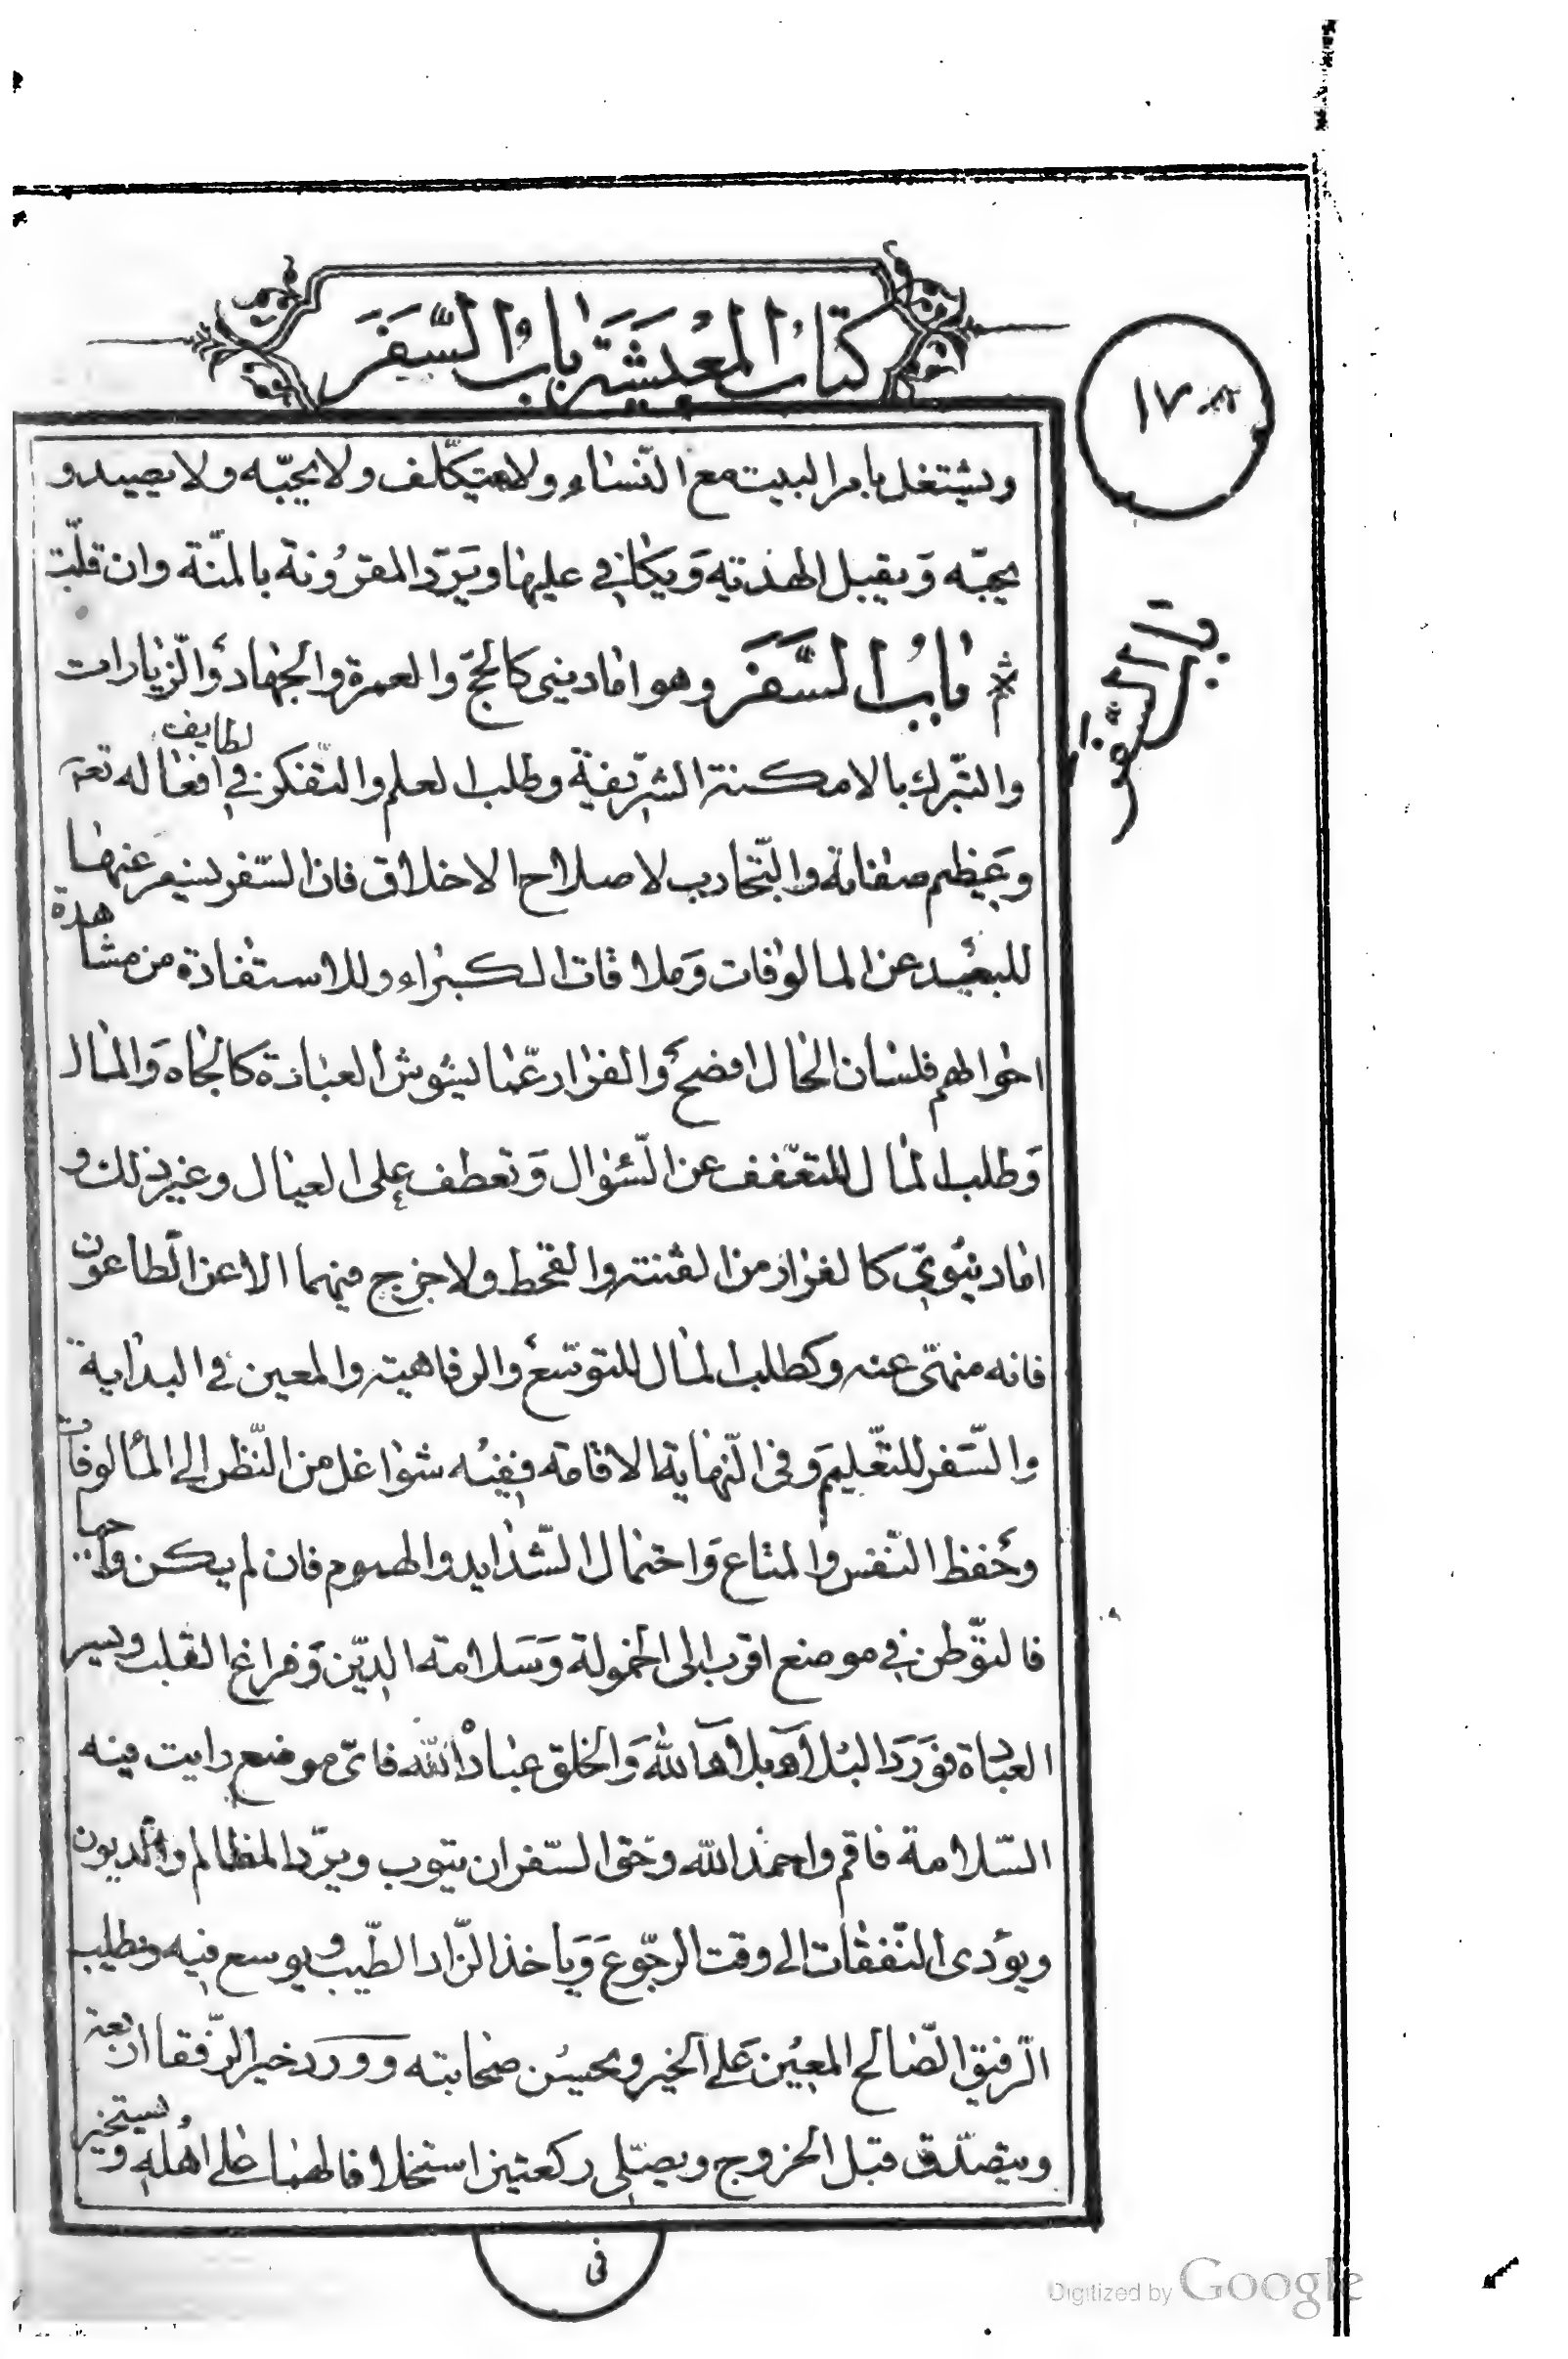 كتاب المعيشة باب السفر
باب السفر
ويشتغل بامر البيت مع النساء ولا يتكلف ولا يجيبه ولا يصيد و
يحبه وَيقبل الهديه وَيكافي عليها ويَردّ المقرُونة بالمنّة وان قلّت
بابُ السَّفَر وهو اما ديني كالحجّ والعمرة والجهاد وَالزيارات
والتبرك بالامكنة الشريفة وطلب العلم والتفكر في لطايف افعاله تعه
وعَظيم صفاته والتجارب لاصلاح الاخلاق فان السّفر يسفر عنها
للبعيد عن المالوفات وَملاقات الكبراء وللاستفادة من مشاهدة
احوالهم فلسان الحال افصح وَالفرار عمّا يشوش العبادة كالجاه وَالمال
وَطلب المال للتعفف عن السّئوال وَتعطف على العيال وغير ذلك و
اما دنيوي كالفرار من الفتنة والقحط ولا حرج فيهما الا عن الطاعون
فانه منهيّ عنه وكطلب المال للتوسّع والرفاهية والمعين في البداية
والسّفر للتعليم وَفي النهاية الاقامة ففيه شواغل من النّظر الى المألوفات
وحَفظ النفس والمتاع وَاحتمال الشّدايد والهموم فان لم يكن واجبا
فالتوّطن في موضع اقرب الى الخمولة وَسَلامة الدّين وَفراغ القلب ويسر
العبادة فوَرَدَ البلاد بلاد الله وَالخلق عبادُ الله فاىّ موضع رايت فيه
السّلامة فاقم واحمد الله وحَق السّفر ان يتوب ويردّ المظالم والديون
ويؤدى النّفقات الى وقت الرجوع وَياخذ الزّاد الطّيب ويوسع فيه ويطلب
الرّفيق الصّالح المعين عَلى الخير ويحسن صحابته وورد خير الرّفقا اربعة
ويتصدّق قبل الخروج ويصلّى ركعتين استخلافا لهما على اهله ويستخير
فى
Digitized by Google